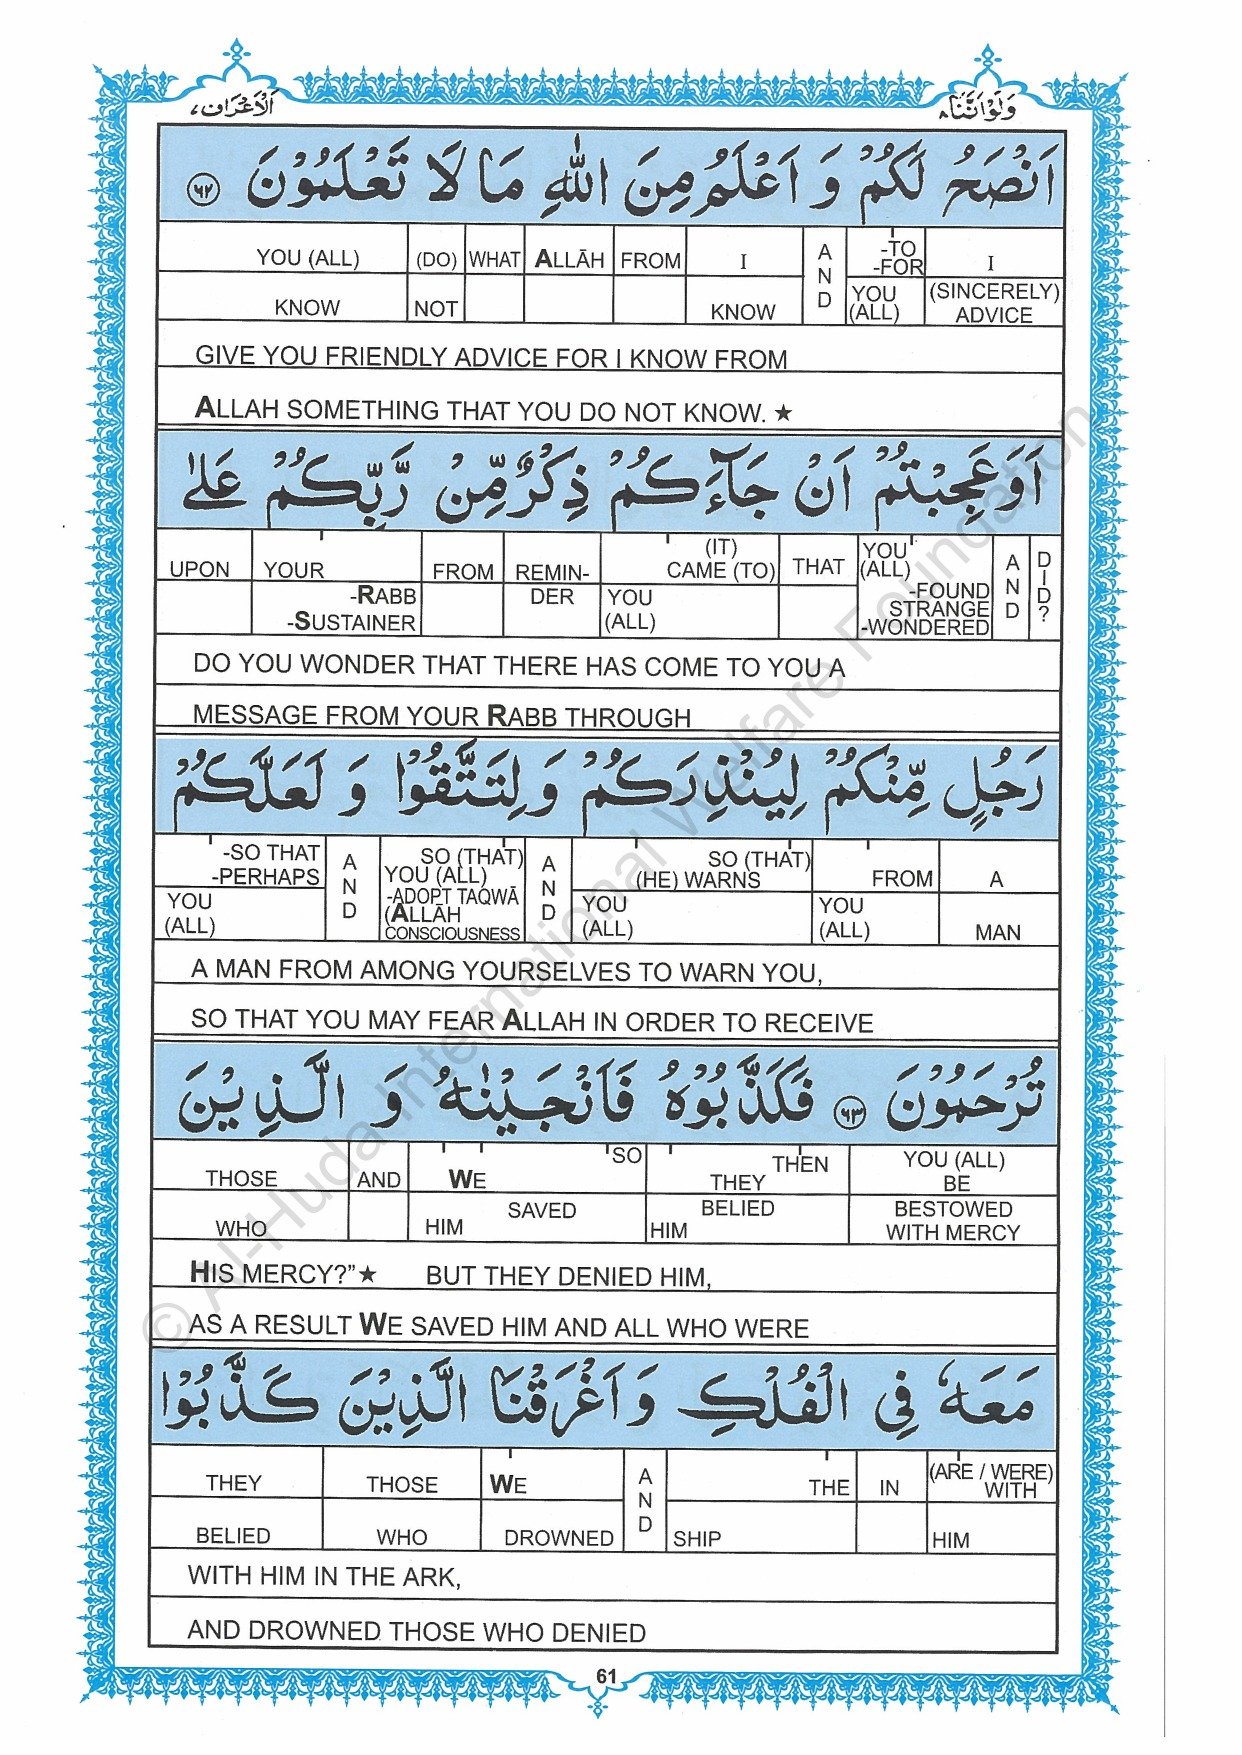 اَلْاَعْرَاف ٧
وَلَوْاَنَّنَا ٨
اَنْصَحُ لَكُمْ وَ اَعْلَمُ مِنَ اللّٰهِ مَا لَا تَعْلَمُوْنَ ۶۲
YOU (ALL) (DO) WHAT ALLĀH FROM I AND -TO I
-FOR
KNOW NOT KNOW YOU (SINCERELY)
(ALL) ADVICE
GIVE YOU FRIENDLY ADVICE FOR I KNOW FROM
ALLAH SOMETHING THAT YOU DO NOT KNOW. ★
اَوَعَجِبْتُمْ اَنْ جَآءَكُمْ ذِكْرٌ مِّنْ رَّبِّكُمْ عَلٰى
UPON YOUR FROM REMIN- (IT) THAT YOU AND DID?
CAME (TO) (ALL)
-RABB DER YOU -FOUND
-SUSTAINER (ALL) STRANGE
-WONDERED
DO YOU WONDER THAT THERE HAS COME TO YOU A
MESSAGE FROM YOUR RABB THROUGH
رَجُلٍ مِّنْكُمْ لِيُنْذِرَكُمْ وَلِتَتَّقُوْا وَ لَعَلَّكُمْ
-SO THAT AND SO (THAT) AND SO (THAT) FROM A
-PERHAPS YOU (ALL) (HE) WARNS
YOU -ADOPT TAQWĀ YOU YOU MAN
(ALL) (ALLĀH (ALL) (ALL)
CONSCIOUSNESS
A MAN FROM AMONG YOURSELVES TO WARN YOU,
SO THAT YOU MAY FEAR ALLAH IN ORDER TO RECEIVE
تُرْحَمُوْنَ ۶۳ فَكَذَّبُوْهُ فَاَنْجَيْنٰهُ وَ الَّذِيْنَ
THOSE AND WE SO THEY THEN YOU (ALL)
BE
WHO HIM SAVED HIM BELIED BESTOWED
WITH MERCY
HIS MERCY?”★ BUT THEY DENIED HIM,
AS A RESULT WE SAVED HIM AND ALL WHO WERE
مَعَهٗ فِى الْفُلْكِ وَاَغْرَقْنَا الَّذِيْنَ كَذَّبُوْا
THEY THOSE WE AND THE IN (ARE / WERE)
WITH
BELIED WHO DROWNED SHIP HIM
WITH HIM IN THE ARK,
AND DROWNED THOSE WHO DENIED
61
© Al-Huda International Welfare Foundation